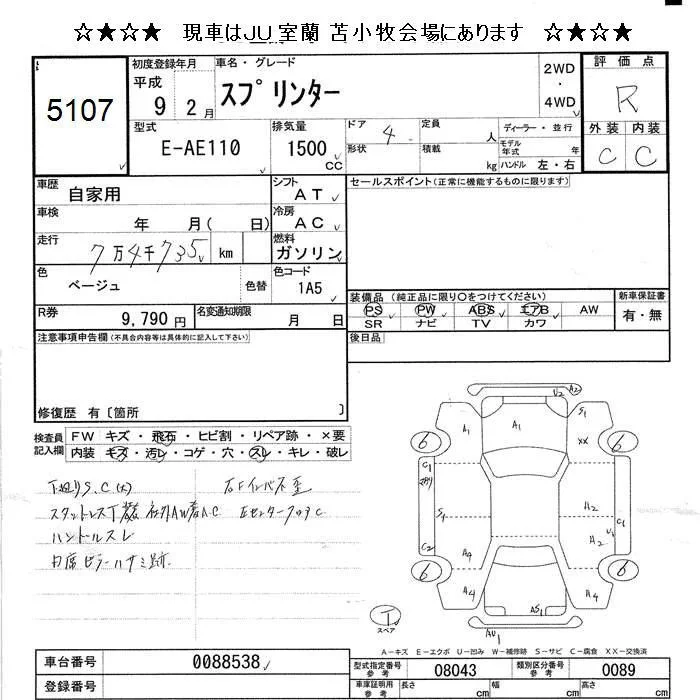 ☆★☆★ 現車はJU室蘭 苫小牧会場にあります ☆★☆★
5107
初度登録年月
平成
9年 2月
車名・グレード
スプリンター
2WD
・
4WD
評価点
R
外装 内装
C C
型式
E-AE110
排気量
1500 CC
ドア 4
形状
定員 人
積載 kg
ディーラー・並行
モデル年式 年
ハンドル 左・右
車歴
自家用
シフト
AT
車検
年 月( 日)
冷房
AC
走行
7万4千735 km
燃料
ガソリン
色
ベージュ
色替
色コード
1A5
R券
9,790 円
名変通知期限
月 日
セールスポイント(正常に機能するものに限ります)
装備品 (純正品に限り○をつけてください)
PS PW ABS エアB AW
SR ナビ TV カワ
新車保証書
有・無
後日品
注意事項申告欄(不具合内容等は具体的に記入して下さい)
修復歴 有〔箇所 〕
検査員記入欄
FW キズ・飛石・ヒビ割・リペア跡・×要
内装 キズ・汚レ・コゲ・穴・スレ・キレ・破レ
S.C(大)
スタットレス
ハントルスレ
A1
U2
A2
S1
XX
6
6
C1
S1
C2
A2
A2
U1
C1
6
6
A4
A4
A4
AS1
AU1
T
スペア
A-キズ E-エクボ U-凹み W-補修跡 S-サビ C-腐食 XX-交換済
車台番号
0088538
登録番号
型式指定番号
参考
08043
類別区分番号
参考
0089
車庫証明用
参考
長さ cm
幅 cm
高さ cm